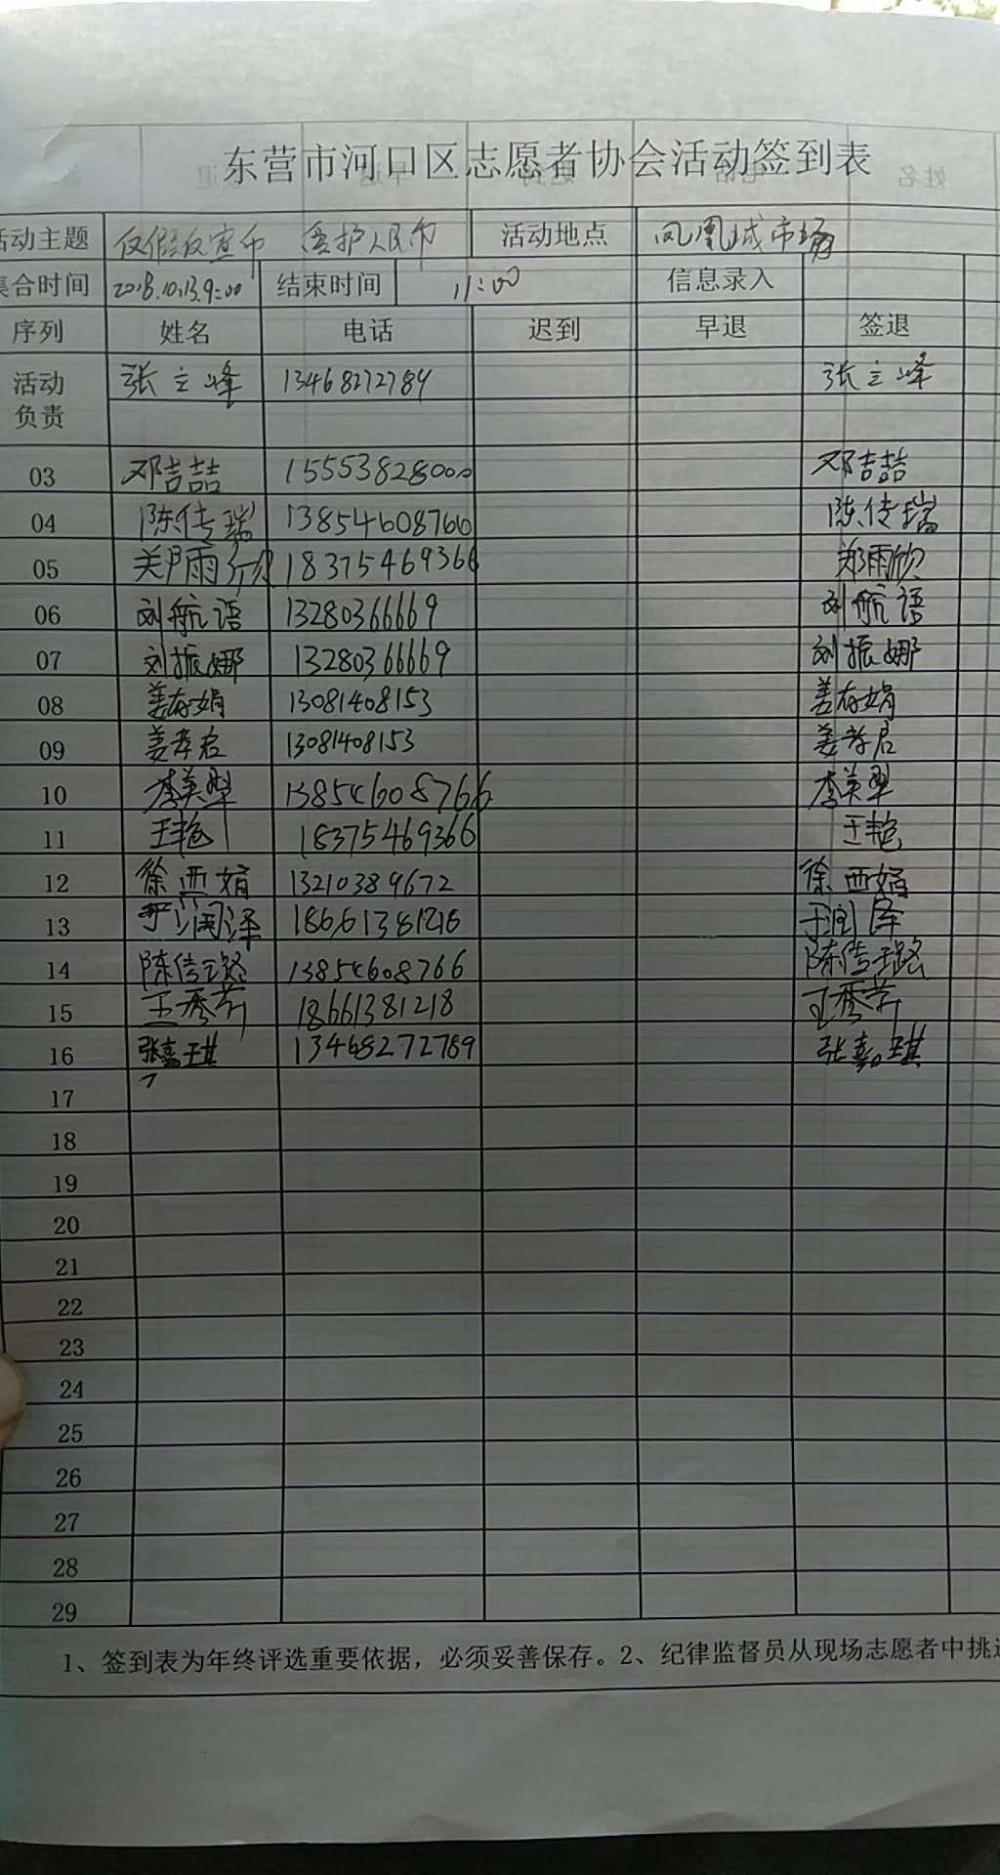 东营市河口区志愿者协会活动签到表
活动主题 反假 宣币 爱护人民币 活动地点 凤凰城市场
集合时间 2018.10.13.9:00 结束时间 11:00 信息录入
序列 姓名 电话 迟到 早退 签退
活动负责 张立峰 13468272789 张立峰
03 邓吉喆 15553828000 邓吉喆
04 陈传瑞 13854608766 陈传瑞
05 郑雨欣 18375469366 郑雨欣
06 刘航语 13280366669 刘航语
07 刘振娜 13280366669 刘振娜
08 姜存娟 13081408153 姜存娟
09 姜孝启 13081408153 姜孝启
10 李美翠 13854608766 李美翠
11 王艳 18375469366 王艳
12 徐西娟 13210389672 徐西娟
13 于润泽 18661381218 于润泽
14 陈传璐 13854608766 陈传璐
15 王秀芹 18661381218 王秀芹
16 张嘉琪 13468272789 张嘉琪
17
18
19
20
21
22
23
24
25
26
27
28
29
1、签到表为年终评选重要依据，必须妥善保存。2、纪律监督员从现场志愿者中挑选